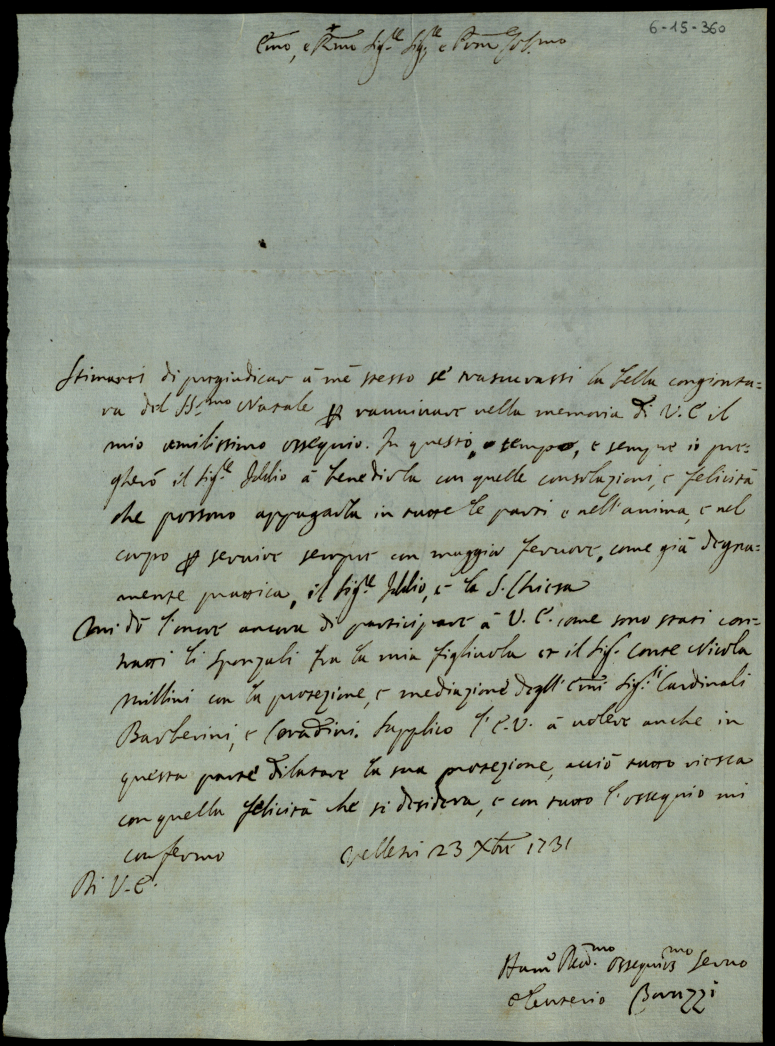 6-15-360
Emo, e Rmo Sigre Sigre e Pron Colmo
Stimarei di pregiudicar à mè stesso se trascurassi la bella congiontu=
ra del SSmo Natale per ravvivare nella memoria di V. E il
mio umilissimo ossequio. In questo tempo, e sempre io pre=
gherò il Sigre Iddio à benedirla con quelle consolazioni, e felicità
che possono appagarla in tutte le parti e nell'anima, e nel
corpo per servire sempre con maggior fervore, come già degna=
mente prattica, il Sigre Iddio, e la S. Chiesa
Mi dò l'onore ancora di participare à V. E. come sono stati con=
tratti li Sponzali fra la mia figliuola et il Sig. Conte Nicola
Millini con la protezione, e mediazione degl'Emi Sigri Cardinali
Barberini, e Corradini. Supplico l'E. V. à volere anche in
questa parte dilatare la sua protezione, acciò tutto riesca
con quella felicità che si desidera, e con tutto l'ossequio mi
confermo Velletri 23 Xbre 1731
Di V. E.
Humo Devmo Ossequiosmo Servo
Borgzzi